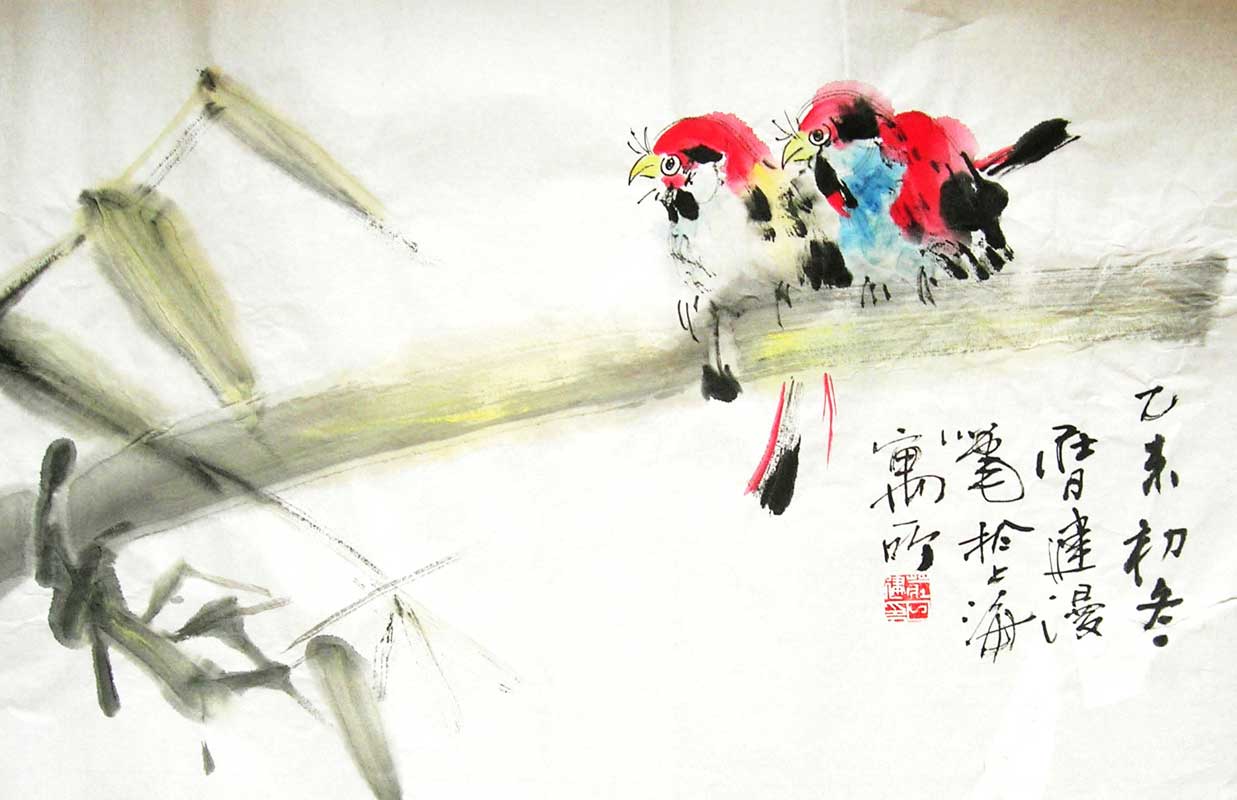 乙未初冬
建漫
笔於上海
寓所